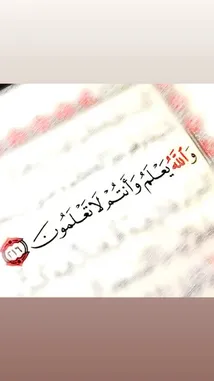 وَاللَّهُ يَعْلَمُ وَأَنتُمْ لَا تَعْلَمُونَ ٢١٦